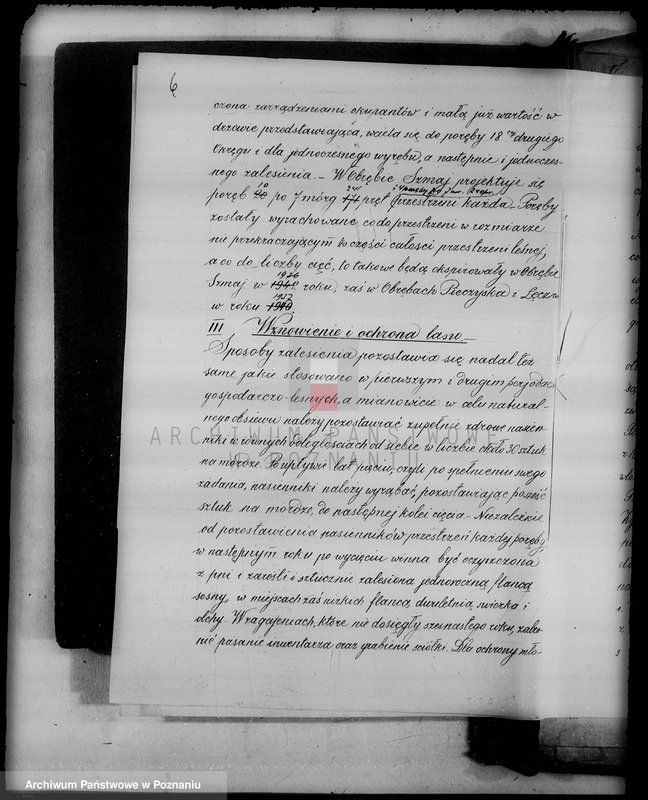 6
czona zarządzeniami okupantów i małą już wartość w
drzewie przedstawiająca, wciela się do poręby 18 drugiego
Okręgu i dla jednoczesnego wyrębu, a następnie i jednoczes-
nego zalesienia. – W Obrębie Szmaj projektuje się
10 241
poręb po 7 mórg 171 pręt. przestrzeni każda. – Poręby
zostały wyrachowane co do przestrzeni w rozmiarze
nie przekraczającym części całości przestrzeni leśnej,
a co do liczby cięć, to takowe będą ekspirowały w Obrębie
1926
Szmaj w 1940 roku, zaś w Obrębach Pieczyska i Łęczno
1932
w roku 1910.
III Wznowienie i ochrona lasu. –
Sposoby zalesienia pozostawia się nadal też
same jakie stosowano w pierwszym i drugim perjodac
gospodarczo-leśnych, a mianowicie: w celu natural-
nego obsiewu należy pozostawiać zupełnie zdrowe nasien-
niki w równych odległościach od siebie w liczbie około 30 sztuk
na mordze. Po upływie lat pięciu, czyli po spełnieniu swego
zadania, nasienniki należy wyrąbać, pozostawiając po sześć
sztuk na mordze, do następnej kolei cięcia. – Niezależnie
od pozostawienia nasienników przestrzeń każdej poręby
w następnym roku po wycięciu winna być oczyszczona
z pni i zarośli i sztucznie zalesiona jednoroczną flancą
sosny, w miejscach zaś nizkich flancą dwuletnią, świerka i
olchy. W zagajeniach, które nie dosięgły szesnastego roku, zabro-
nić pasanie inwentarza oraz grabienie ściółki. Dla ochrony mło-
ARCHIWUM PAŃSTWOWE
W POZNANIU
Archiwum Państwowe w Poznaniu